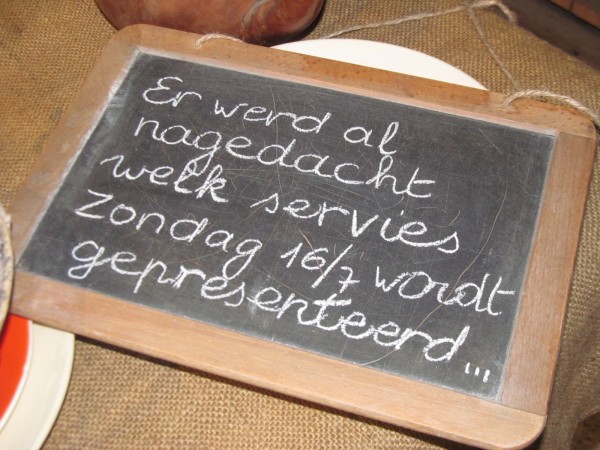 Er werd al
nagedacht
welk servies
Zondag 16/7 wordt
gepresenteerd...